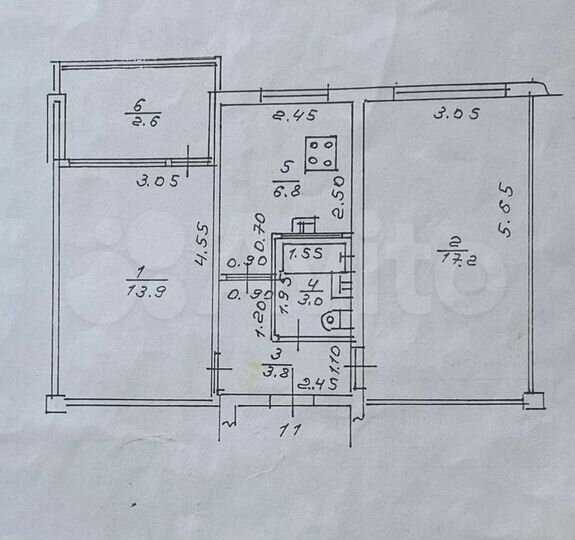 6
2.6
2.45
3.05
3.05
5
6.8
2.50
5.65
4.55
0.70
0.90
1.55
2
17.2
1
13.9
0.90
1.95
4
3.0
1.20
3
3.8
1.10
2.45
11
Avito